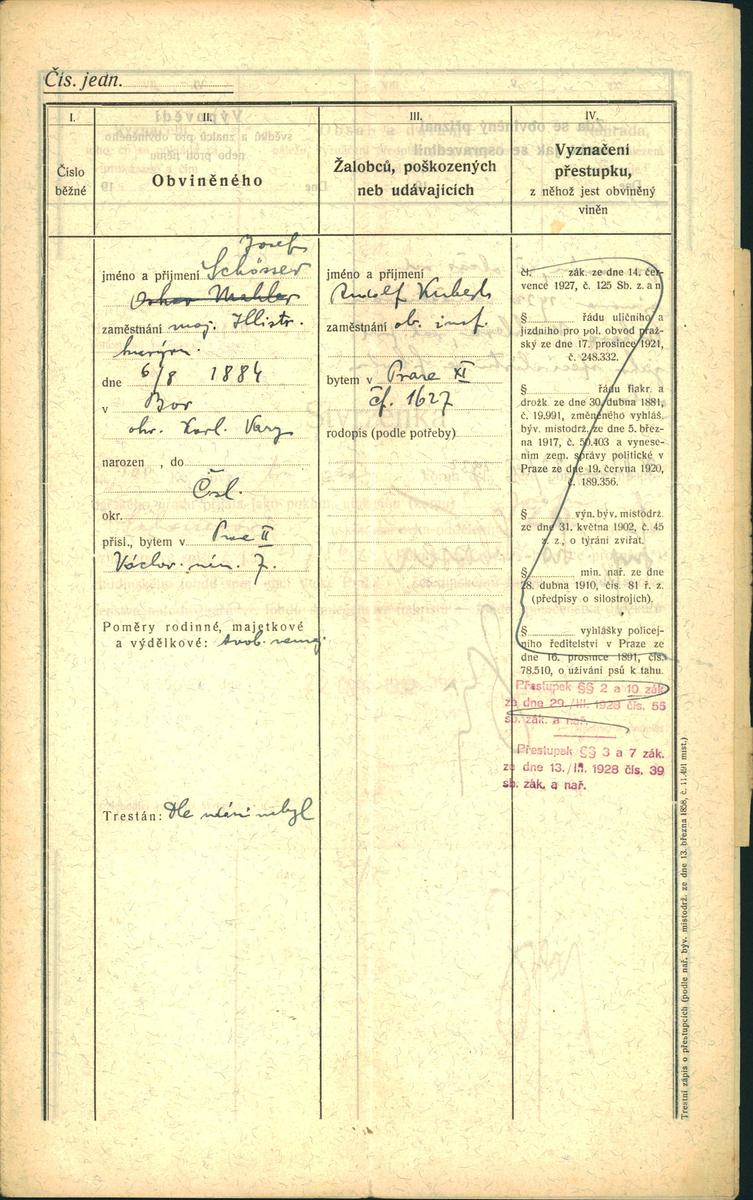 Čís. jedn.
I.
Číslo
běžné
II.
Obviněného
III.
Žalobců, poškozených
neb udávajících
IV.
Vyznačení
přestupku,
z něhož jest obviněný
viněn
Josef
jméno a příjmení
Oskar Mahler
zaměstnání maj. Illustr.
dne 6/8 1884
v Bor
okr. Karl. Vary
narozen , do
Čsl.
okr.
přísl., bytem v II
Václav. nám. 7.
Poměry rodinné, majetkové
a výdělkové: svob. nemaj.
Trestán: Dle udání nebyl
jméno a příjmení
Rudolf
zaměstnání ob. insp.
bytem v Praze XI
čp. 1627
rodopis (podle potřeby)
čl. zák. ze dne 14. čer-
vence 1927, č. 125 Sb. z. a n
§ řádu uličního a
jízdního pro pol. obvod praž-
ský ze dne 17. prosince 1921,
č. 248.332.
§ řádu fiakr. a
drožk. ze dne 30. dubna 1881,
č. 19.991, změněného vyhláš.
býv. místodrž. ze dne 5. břez-
na 1917, č. 50.403 a vynese-
ním zem. správy politické v
Praze ze dne 19. června 1920,
č. 189.356.
§ výn. býv. místodrž.
ze dne 31. května 1902, č. 45
z. z., o týrání zvířat.
§ min. nař. ze dne
28. dubna 1910, č. 81 ř. z.
(předpisy o silostrojích).
§ vyhlášky policej-
ního ředitelství v Praze ze
dne 16. prosince 1891, čís.
78.510, o užívání psů k tahu.
Přestupek §§ 2 a 10 zák.
ze dne 29./III. 1928 čís. 55
sb. zák. a nař.
Přestupek §§ 3 a 7 zák.
ze dne 13./III. 1928 čís. 39
sb. zák. a nař.
Trestní zápis o přestupcích (podle nař. býv. místodrž. ze dne 13. března 1858, č. 11.491 míst.)